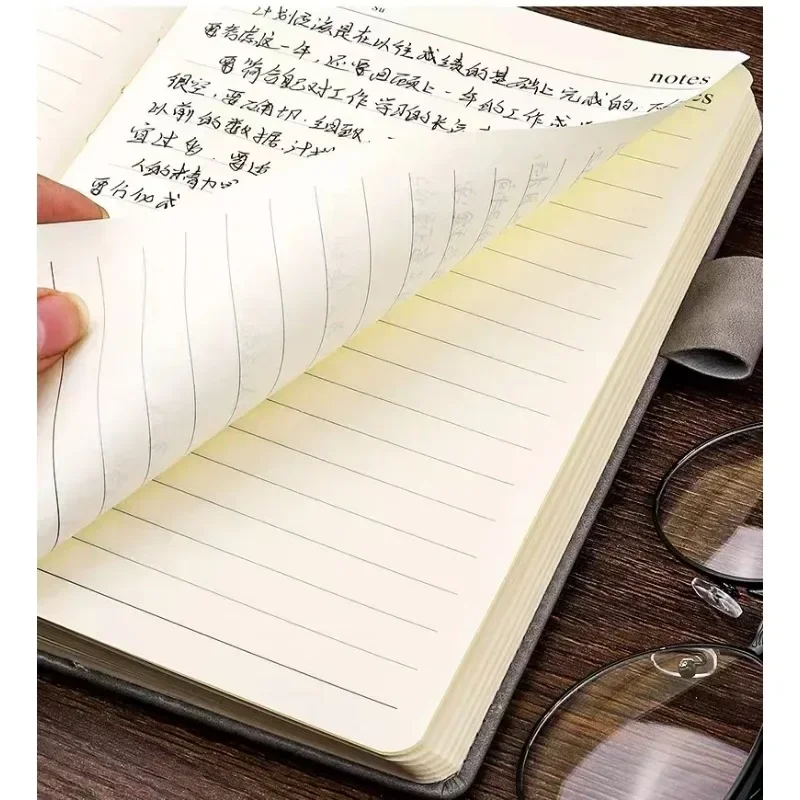 Su
notes
es
计划应该是在以往成绩的基础上完成的,
要考虑这一年,还要回顾上一年的工作成
要符合自己对工作学习的长远
很空,要确切.细致.
以前的数据.计划
宜过多.要
人的精力
要分